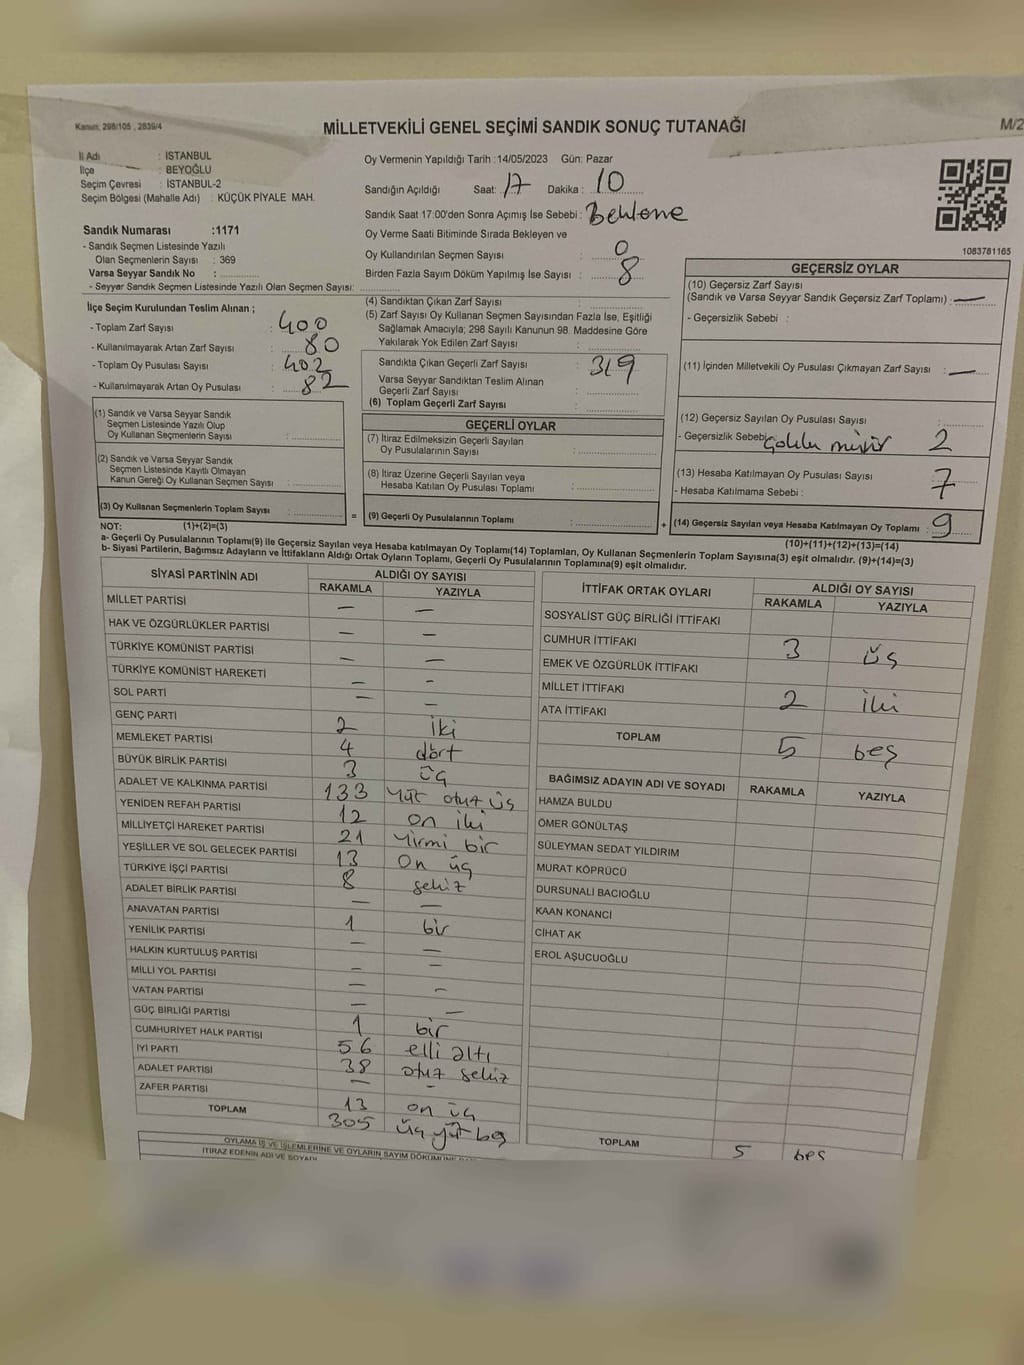 Kanun: 298/105 , 2839/4
MİLLETVEKİLİ GENEL SEÇİMİ SANDIK SONUÇ TUTANAĞI
M/2
İl Adı : İSTANBUL
İlçe : BEYOĞLU
Seçim Çevresi : İSTANBUL-2
Seçim Bölgesi (Mahalle Adı) : KÜÇÜK PİYALE MAH.
Oy Vermenin Yapıldığı Tarih : 14/05/2023 Gün: Pazar
Sandığın Açıldığı Saat: 17 Dakika : 10
Sandık Saat 17:00'den Sonra Açımış İse Sebebi : Bekleme
Oy Verme Saati Bitiminde Sırada Bekleyen ve
Oy Kullandırılan Seçmen Sayısı : 0
Birden Fazla Sayım Döküm Yapılmış İse Sayısı : 8
1083781165
Sandık Numarası :1171
- Sandık Seçmen Listesinde Yazılı
Olan Seçmenlerin Sayısı : 369
Varsa Seyyar Sandık No :
- Seyyar Sandık Seçmen Listesinde Yazılı Olan Seçmen Sayısı:
İlçe Seçim Kurulundan Teslim Alınan ;
- Toplam Zarf Sayısı : 400
- Kullanılmayarak Artan Zarf Sayısı : 80
- Toplam Oy Pusulası Sayısı : 402
- Kullanılmayarak Artan Oy Pusulası : 82
(1) Sandık ve Varsa Seyyar Sandık
Seçmen Listesinde Yazılı Olup
Oy Kullanan Seçmenlerin Sayısı :
(2) Sandık ve Varsa Seyyar Sandık
Seçmen Listesinde Kayıtlı Olmayan
Kanun Gereği Oy Kullanan Seçmen Sayısı :
(3) Oy Kullanan Seçmenlerin Toplam Sayısı : =
(4) Sandıktan Çıkan Zarf Sayısı :
(5) Zarf Sayısı Oy Kullanan Seçmen Sayısından Fazla İse, Eşitliği
Sağlamak Amacıyla; 298 Sayılı Kanunun 98. Maddesine Göre
Yakılarak Yok Edilen Zarf Sayısı :
Sandıkta Çıkan Geçerli Zarf Sayısı : 319
Varsa Seyyar Sandıktan Teslim Alınan
Geçerli Zarf Sayısı :
(6) Toplam Geçerli Zarf Sayısı :
GEÇERLİ OYLAR
(7) İtiraz Edilmeksizin Geçerli Sayılan
Oy Pusulalarının Sayısı :
(8) İtiraz Üzerine Geçerli Sayılan veya
Hesaba Katılan Oy Pusulası Toplamı :
(9) Geçerli Oy Pusulalarının Toplamı : +
GEÇERSİZ OYLAR
(10) Geçersiz Zarf Sayısı
(Sandık ve Varsa Seyyar Sandık Geçersiz Zarf Toplamı) : —
- Geçersizlik Sebebi :
(11) İçinden Milletvekili Oy Pusulası Çıkmayan Zarf Sayısı : —
(12) Geçersiz Sayılan Oy Pusulası Sayısı :
- Geçersizlik Sebebi: 2
(13) Hesaba Katılmayan Oy Pusulası Sayısı : 7
- Hesaba Katılmama Sebebi :
(14) Geçersiz Sayılan veya Hesaba Katılmayan Oy Toplamı : 9
NOT: (1)+(2)=(3)
(10)+(11)+(12)+(13)=(14)
a- Geçerli Oy Pusulalarının Toplamı(9) ile Geçersiz Sayılan veya Hesaba katılmayan Oy Toplamı(14) Toplamları, Oy Kullanan Seçmenlerin Toplam Sayısına(3) eşit olmalıdır. (9)+(14)=(3)
b- Siyasi Partilerin, Bağımsız Adayların ve İttifakların Aldığı Ortak Oyların Toplamı, Geçerli Oy Pusulalarının Toplamına(9) eşit olmalıdır.
SİYASİ PARTİNİN ADI ALDIĞI OY SAYISI
RAKAMLA YAZIYLA
MİLLET PARTİSİ — —
HAK VE ÖZGÜRLÜKLER PARTİSİ — —
TÜRKİYE KOMÜNİST PARTİSİ — —
TÜRKİYE KOMÜNİST HAREKETİ — -
SOL PARTİ — —
GENÇ PARTİ 2 iki
MEMLEKET PARTİSİ 4 dört
BÜYÜK BİRLİK PARTİSİ 3 üç
ADALET VE KALKINMA PARTİSİ 133 Yüz otuz üç
YENİDEN REFAH PARTİSİ 12 on iki
MİLLİYETÇİ HAREKET PARTİSİ 21 Yirmi bir
YEŞİLLER VE SOL GELECEK PARTİSİ 13 On üç
TÜRKİYE İŞÇİ PARTİSİ 8 sekiz
ADALET BİRLİK PARTİSİ — —
ANAVATAN PARTİSİ 1 bir
YENİLİK PARTİSİ — —
HALKIN KURTULUŞ PARTİSİ — —
MİLLİ YOL PARTİSİ — —
VATAN PARTİSİ — —
GÜÇ BİRLİĞİ PARTİSİ 1 bir
CUMHURİYET HALK PARTİSİ 56 elli altı
İYİ PARTİ 38 otuz sekiz
ADALET PARTİSİ — -
ZAFER PARTİSİ 13 on üç
TOPLAM 305 üç yüz beş
İTTİFAK ORTAK OYLARI ALDIĞI OY SAYISI
RAKAMLA YAZIYLA
SOSYALİST GÜÇ BİRLİĞİ İTTİFAKI
CUMHUR İTTİFAKI 3 üç
EMEK VE ÖZGÜRLÜK İTTİFAKI
MİLLET İTTİFAKI 2 iki
ATA İTTİFAKI
TOPLAM 5 beş
BAĞIMSIZ ADAYIN ADI VE SOYADI RAKAMLA YAZIYLA
HAMZA BULDU
ÖMER GÖNÜLTAŞ
SÜLEYMAN SEDAT YILDIRIM
MURAT KÖPRÜCÜ
DURSUNALİ BACIOĞLU
KAAN KONANCİ
CİHAT AK
EROL AŞUCUOĞLU
TOPLAM 5 beş
OYLAMA İŞ VE İŞLEMLERİNE VE OYLARIN SAYIM DÖKÜMÜNE
İTİRAZ EDENİN ADI VE SOYADI